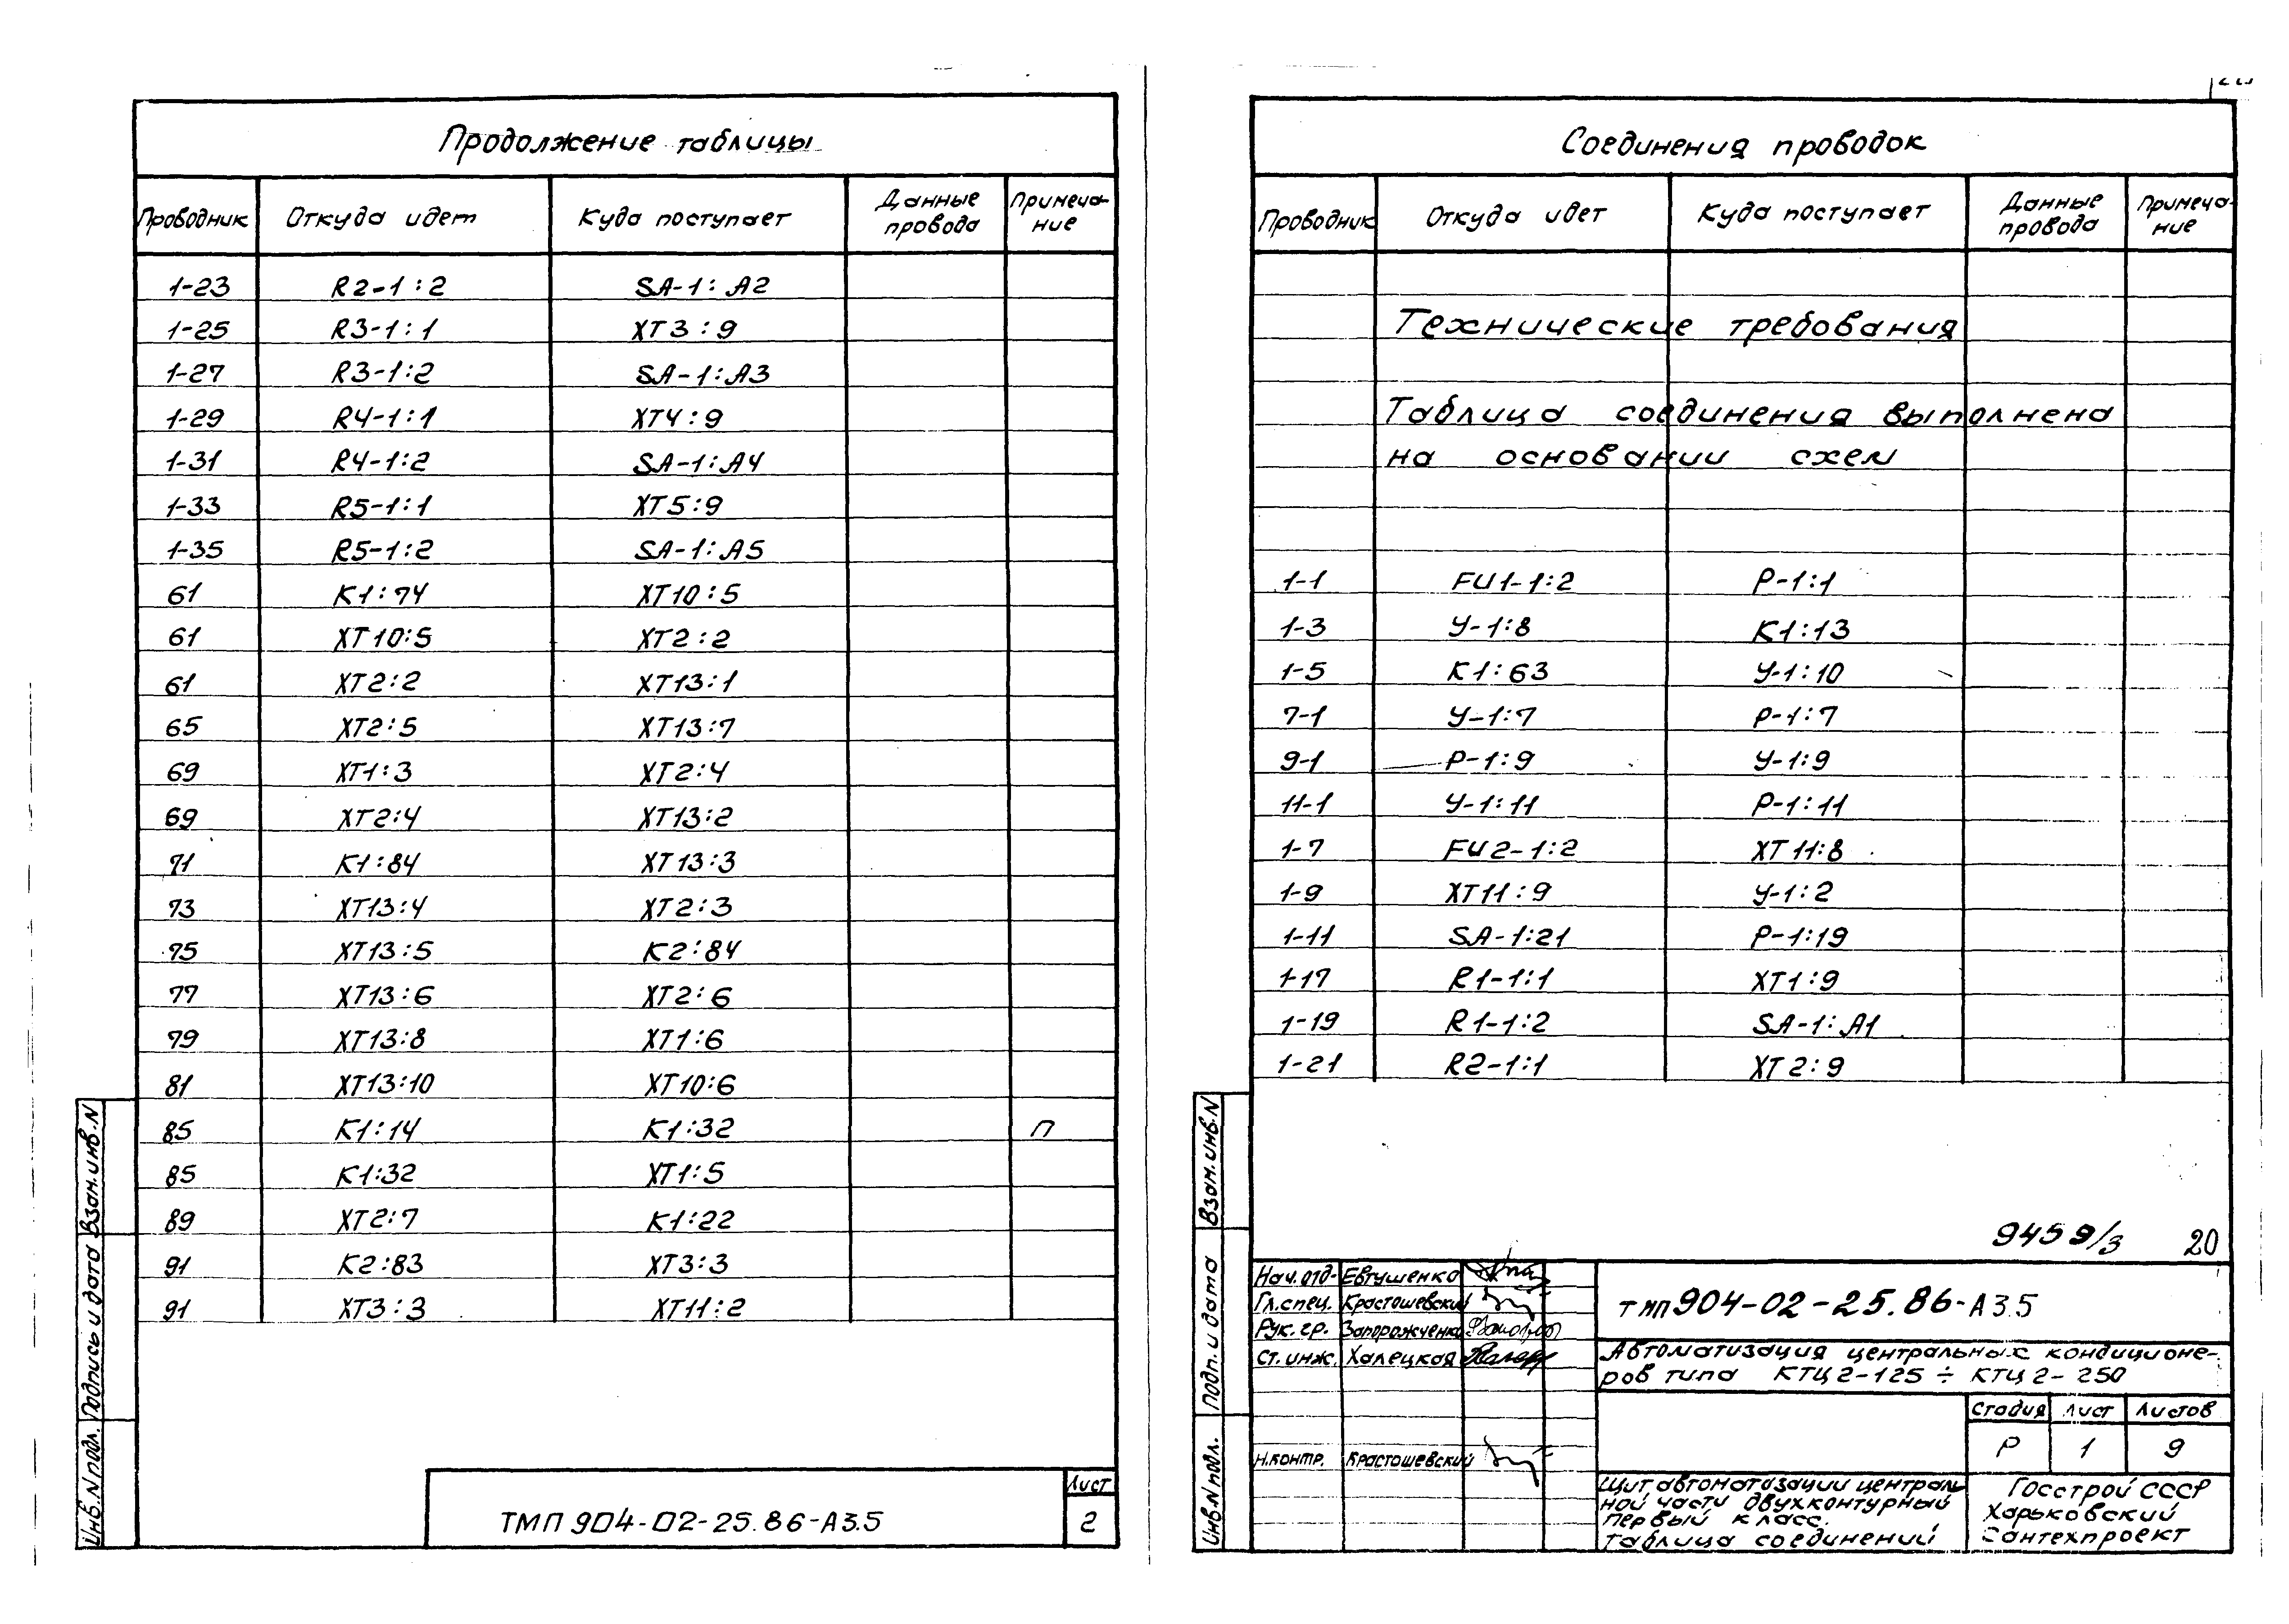 Продолжение таблицы
Проводник Откуда идет Куда поступает Данные провода Примеча-ние
1-23 R2-1:2 SA-1:A2
1-25 R3-1:1 XT3:9
1-27 R3-1:2 SA-1:A3
1-29 R4-1:1 XT4:9
1-31 R4-1:2 SA-1:A4
1-33 R5-1:1 XT5:9
1-35 R5-1:2 SA-1:A5
61 K1:74 XT10:5
61 XT10:5 XT2:2
61 XT2:2 XT13:1
65 XT2:5 XT13:7
69 XT1:3 XT2:4
69 XT2:4 XT13:2
71 K1:84 XT13:3
73 XT13:4 XT2:3
75 XT13:5 K2:84
77 XT13:6 XT2:6
79 XT13:8 XT1:6
81 XT13:10 XT10:6
85 K1:14 K1:32 П
85 K1:32 XT1:5
89 XT2:7 K1:22
91 K2:83 XT3:3
91 XT3:3 XT11:2
Инв.N подл. Подпись и дата Взам.инв.N
ТМП 904-02-25.86-А3.5
Лист
2
Соединения проводок
Проводник Откуда идет Куда поступает Данные провода Примеча-ние
Технические требования
Таблица соединения выполнена
на основании схем
1-1 FU1-1:2 P-1:1
1-3 У-1:8 K1:13
1-5 K1:63 У-1:10
7-1 У-1:7 P-1:7
9-1 P-1:9 У-1:9
11-1 У-1:11 P-1:11
1-7 FU2-1:2 XT11:8
1-9 XT11:9 У-1:2
1-11 SA-1:21 P-1:19
1-17 R1-1:1 XT1:9
1-19 R1-1:2 SA-1:A1
1-21 R2-1:1 XT2:9
9459/3 20
Инв.N подл. Подп. и дата Взам.инв.N
Нач.отд. Евтушенко
Гл.спец. Красташевский
Рук.гр. Запорожченко
Ст.инж. Халецкая
Н.контр. Красташевский
ТМП 904-02-25.86-А3.5
Автоматизация центральных кондиционе-
ров типа КТЦ2-125 ÷ КТЦ2-250
Стадия Лист Листов
Р 1 9
Щит автоматизации централь-
ной части двухконтурный
первый класс.
Таблица соединений
Госстрой СССР
Харьковский
Сантехпроект